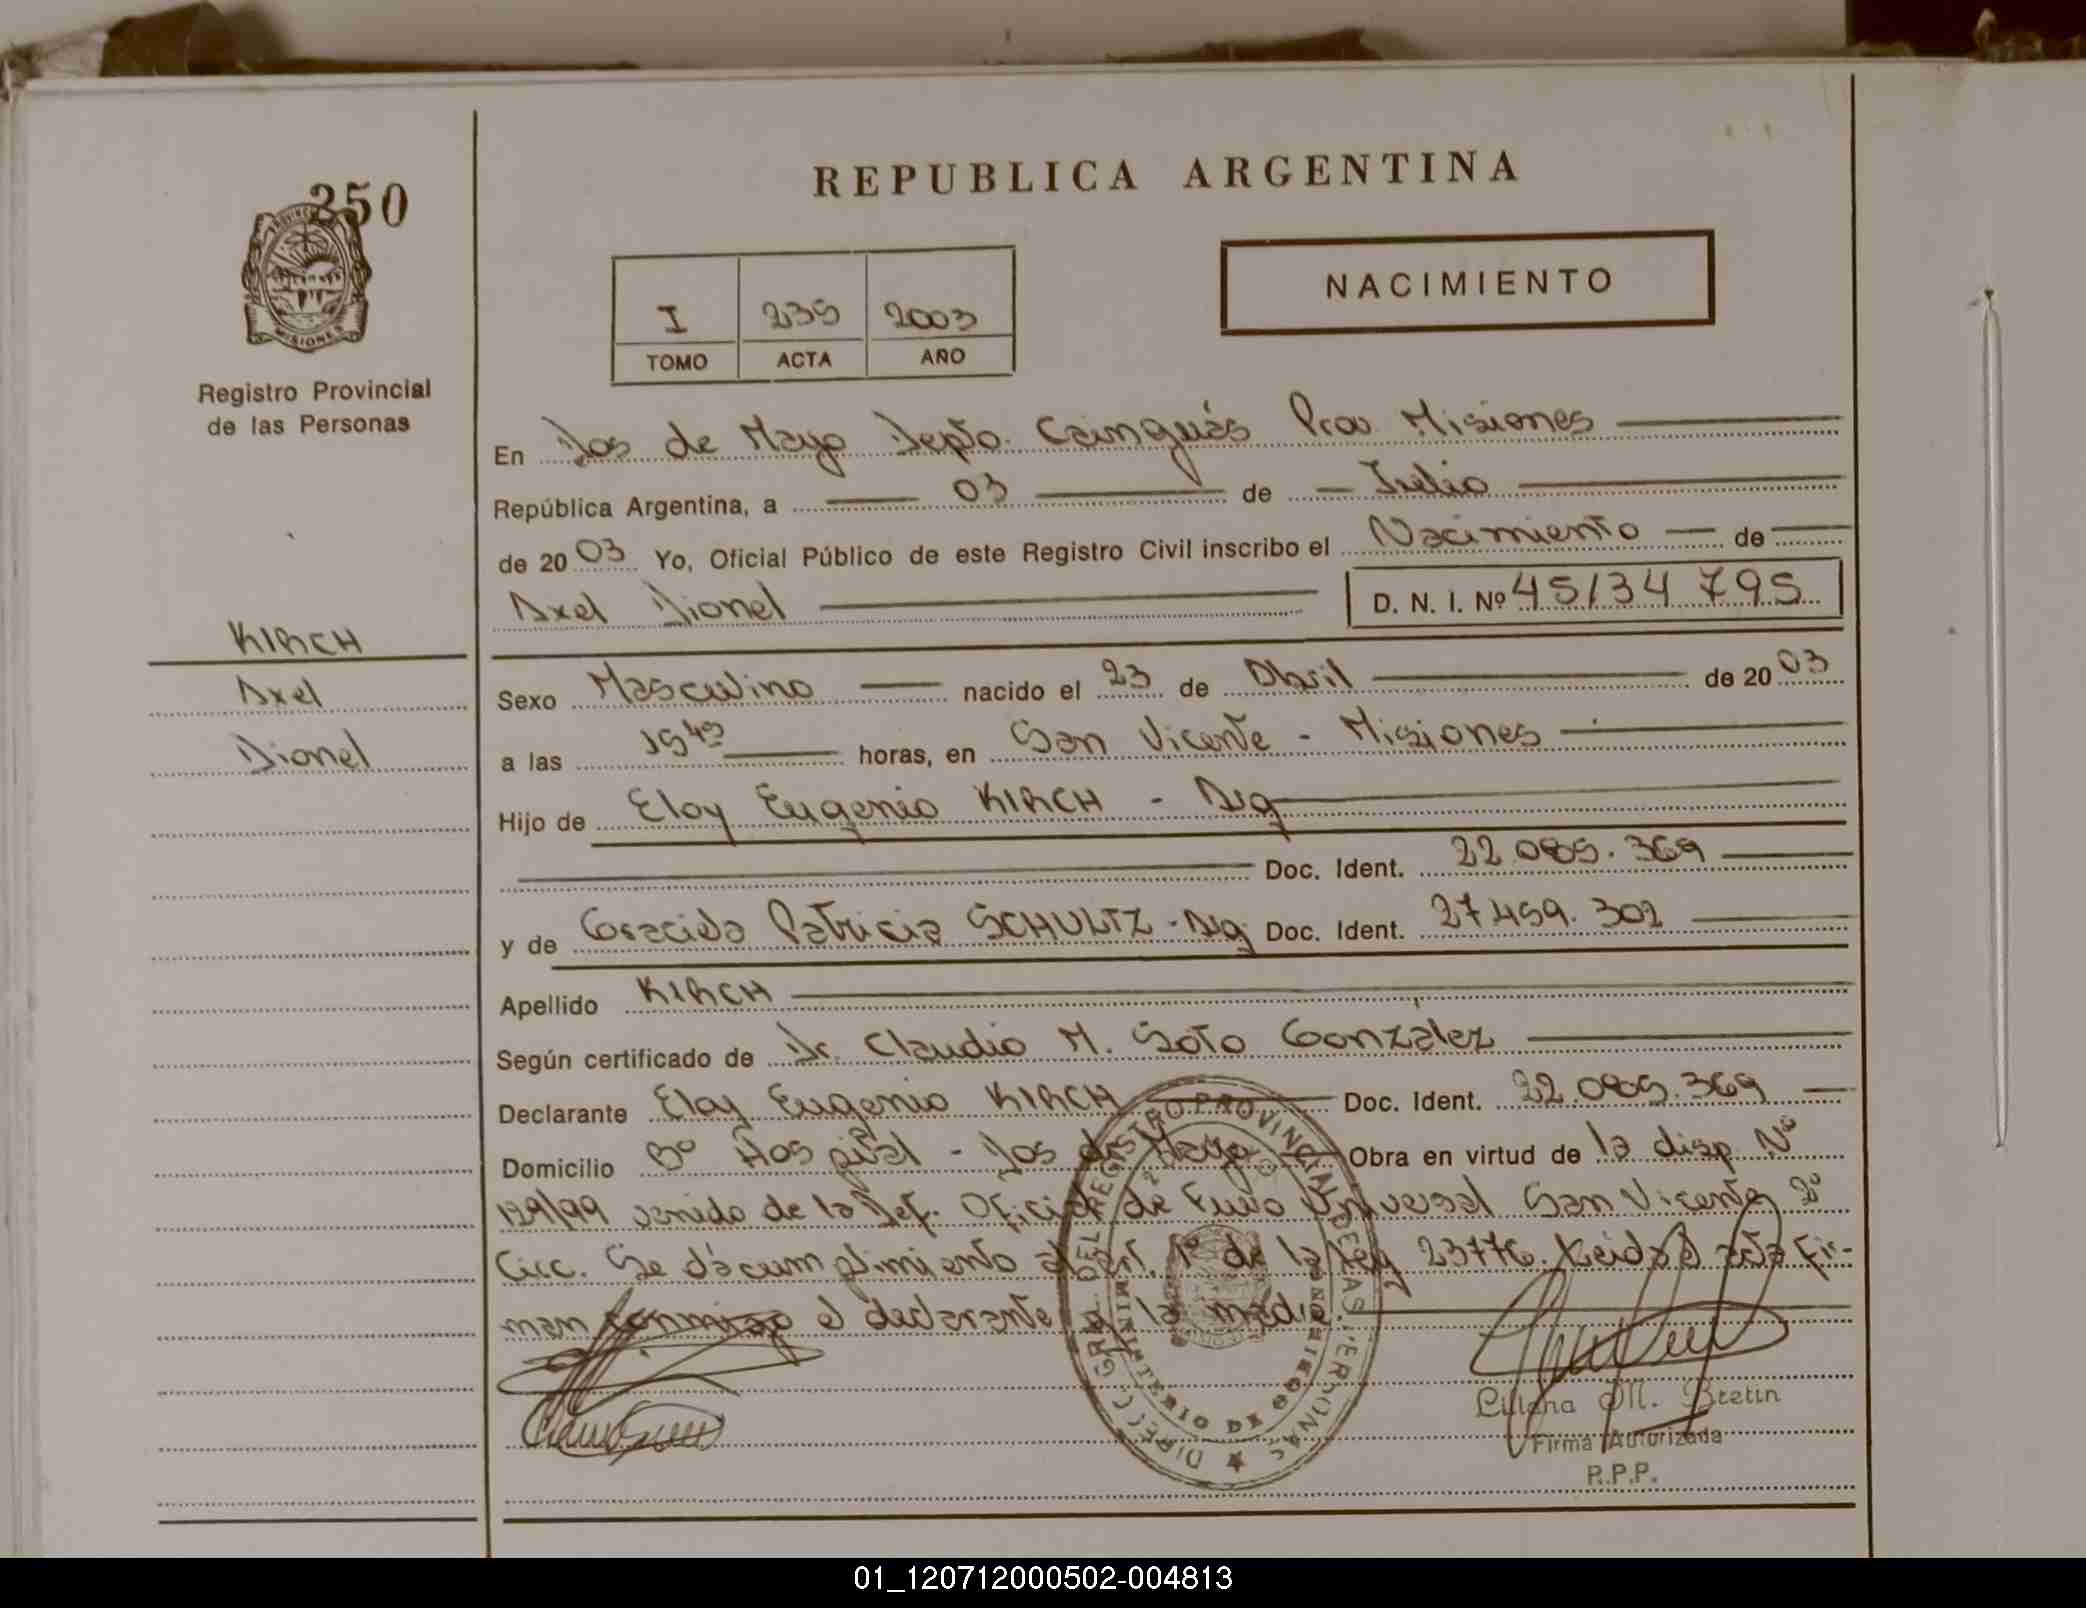 250
PROVINCIA
MISIONES
Registro Provincial
de las Personas
KIRCH
Axel
Dionel
REPUBLICA ARGENTINA
I 235 2003
TOMO ACTA AÑO
NACIMIENTO
En Dos de Mayo Depto. Cainguás Prov Misiones
República Argentina, a 03 de Julio
de 2003 Yo, Oficial Público de este Registro Civil inscribo el Nacimiento de
Axel Dionel D. N. I. Nº 45134 795
Sexo Masculino nacido el 23 de Abril de 2003
a las 15 horas, en San Vicente - Misiones
Hijo de Eloy Eugenio KIRCH - Arg
Doc. Ident. 22.085.369
y de Gracida Patricia SCHULTZ - Arg Doc. Ident. 27.459.302
Apellido KIRCH
Según certificado de Dr. Claudio M. Soto González
Declarante Eloy Eugenio KIRCH Doc. Ident. 22.085.369
Domicilio Bº Hospital - Dos de Mayo Obra en virtud de la disp. Nº
129/99 de la Def. Oficial de Fuero Universal San Vicente 2º
Circ. Se dá cumplimiento al art. 1º de la Ley 23776. Leida el acta fir-
man conmigo el declarante y la madre.
DIREC. GRAL. DEL REGISTRO PROVINCIAL DE LAS PERSONAS
MINISTERIO DE GOBIERNO
Liliana M. Bretin
Firma Autorizada
R.P.P.
01_120712000502-004813